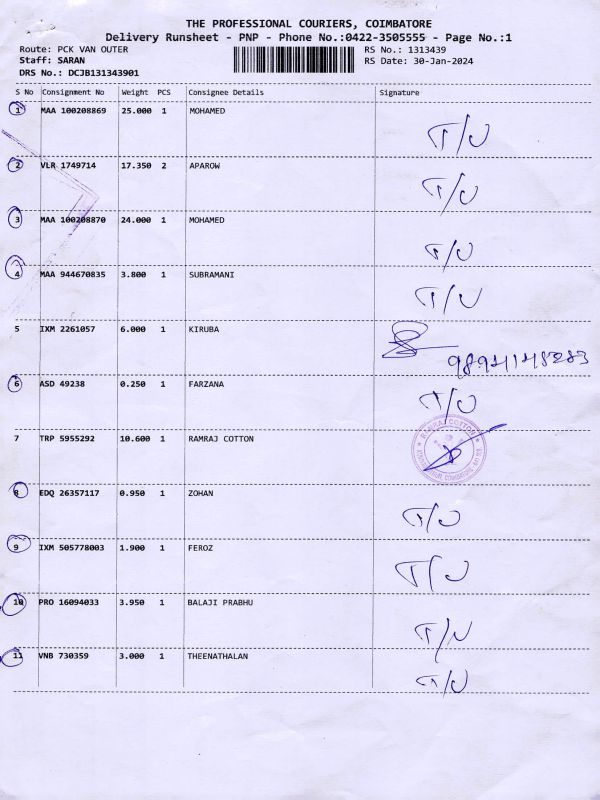 THE PROFESSIONAL COURIERS, COIMBATORE
Delivery Runsheet - PNP - Phone No.:0422-3505555 - Page No.:1
Route: PCK VAN OUTER RS No.: 1313439
Staff: SARAN RS Date: 30-Jan-2024
DRS No.: DCJB131343901
S No Consignment No Weight PCS Consignee Details Signature
1 MAA 100208869 25.000 1 MOHAMED T/U
2 VLR 1749714 17.350 2 APAROW T/U
3 MAA 100208870 24.000 1 MOHAMED T/U
4 MAA 944670835 3.800 1 SUBRAMANI T/U
5 IXM 2261057 6.000 1 KIRUBA
6 ASD 49238 0.250 1 FARZANA T/U
7 TRP 5955292 10.600 1 RAMRAJ COTTON RAMRAJ COTTON
8 EDQ 26357117 0.950 1 ZOHAN T/U
9 IXM 505778003 1.900 1 FEROZ T/U
10 PRO 16094033 3.950 1 BALAJI PRABHU T/U
11 VNB 730359 3.000 1 THEENATHALAN T/U